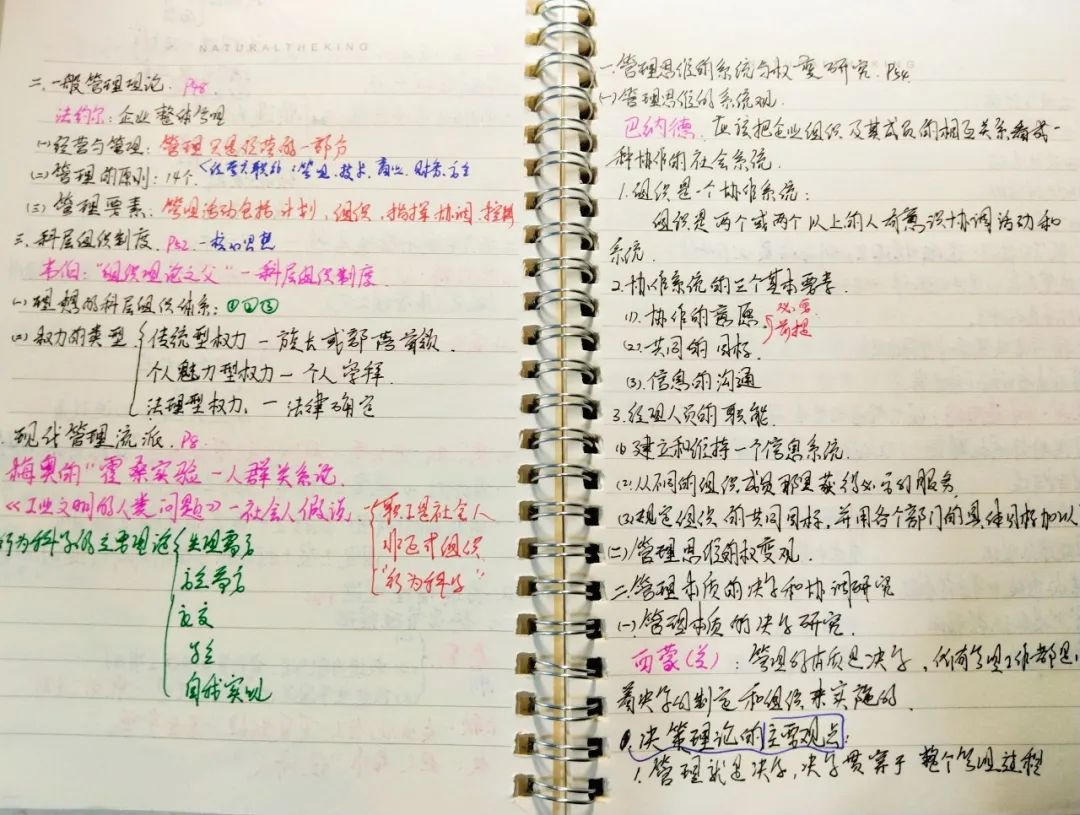 NATURALTHEKING
二、一般管理理论. P48
法约尔：企业整体管理
(一)经营与管理：管理只是经营的一部分
(二)管理的原则：14个 <经营六职能：管理、技术、商业、财务、安全
(三)管理要素：管理活动包括计划、组织、指挥、协调、控制
三、科层组织制度. P52. 一般的思想
韦伯："组织理论之父"—科层组织制度
(一)理想的科层组织体系：①②③
(二)权力的类型 传统型权力—族长或部落首领.
个人魅力型权力—个人崇拜.
法理型权力.—法律确定
现代管理流派. P8.
梅奥的"霍桑实验—人群关系论.
《工业文明的人类问题》—社会人假说. 职工是社会人
非正式组织
"行为科学"
行为科学的主要理论 生理需要
安全需要
社交
尊重
自我实现
一、管理思维的系统与权变研究. P54
(一)管理思维的系统观.
巴纳德. 应该把企业组织及其成员的相互关系看成一
种协作的社会系统.
1.组织是一个协作系统：
组织是两个或两个以上的人有意识协调活动和
系统.
2.协作系统的三个基本要素.
(1).协作的意愿 必要前提
(2).共同的目标.
(3).信息的沟通
3.经理人员的职能.
(1)建立和维持一个信息系统.
(2)从不同的组织成员那里获得必要的服务.
(3)规定组织的共同目标,并用各个部门的具体目标加以
(二)管理思维的权变观.
二、管理本质的决策和协调研究
(一).管理本质的决策研究.
西蒙(美)：管理的本质是决策，所有管理工作都是
着决策的制定和组织来实施的.
1.决策理论的主要观点:
1.管理就是决策,决策贯穿于整个管理过程